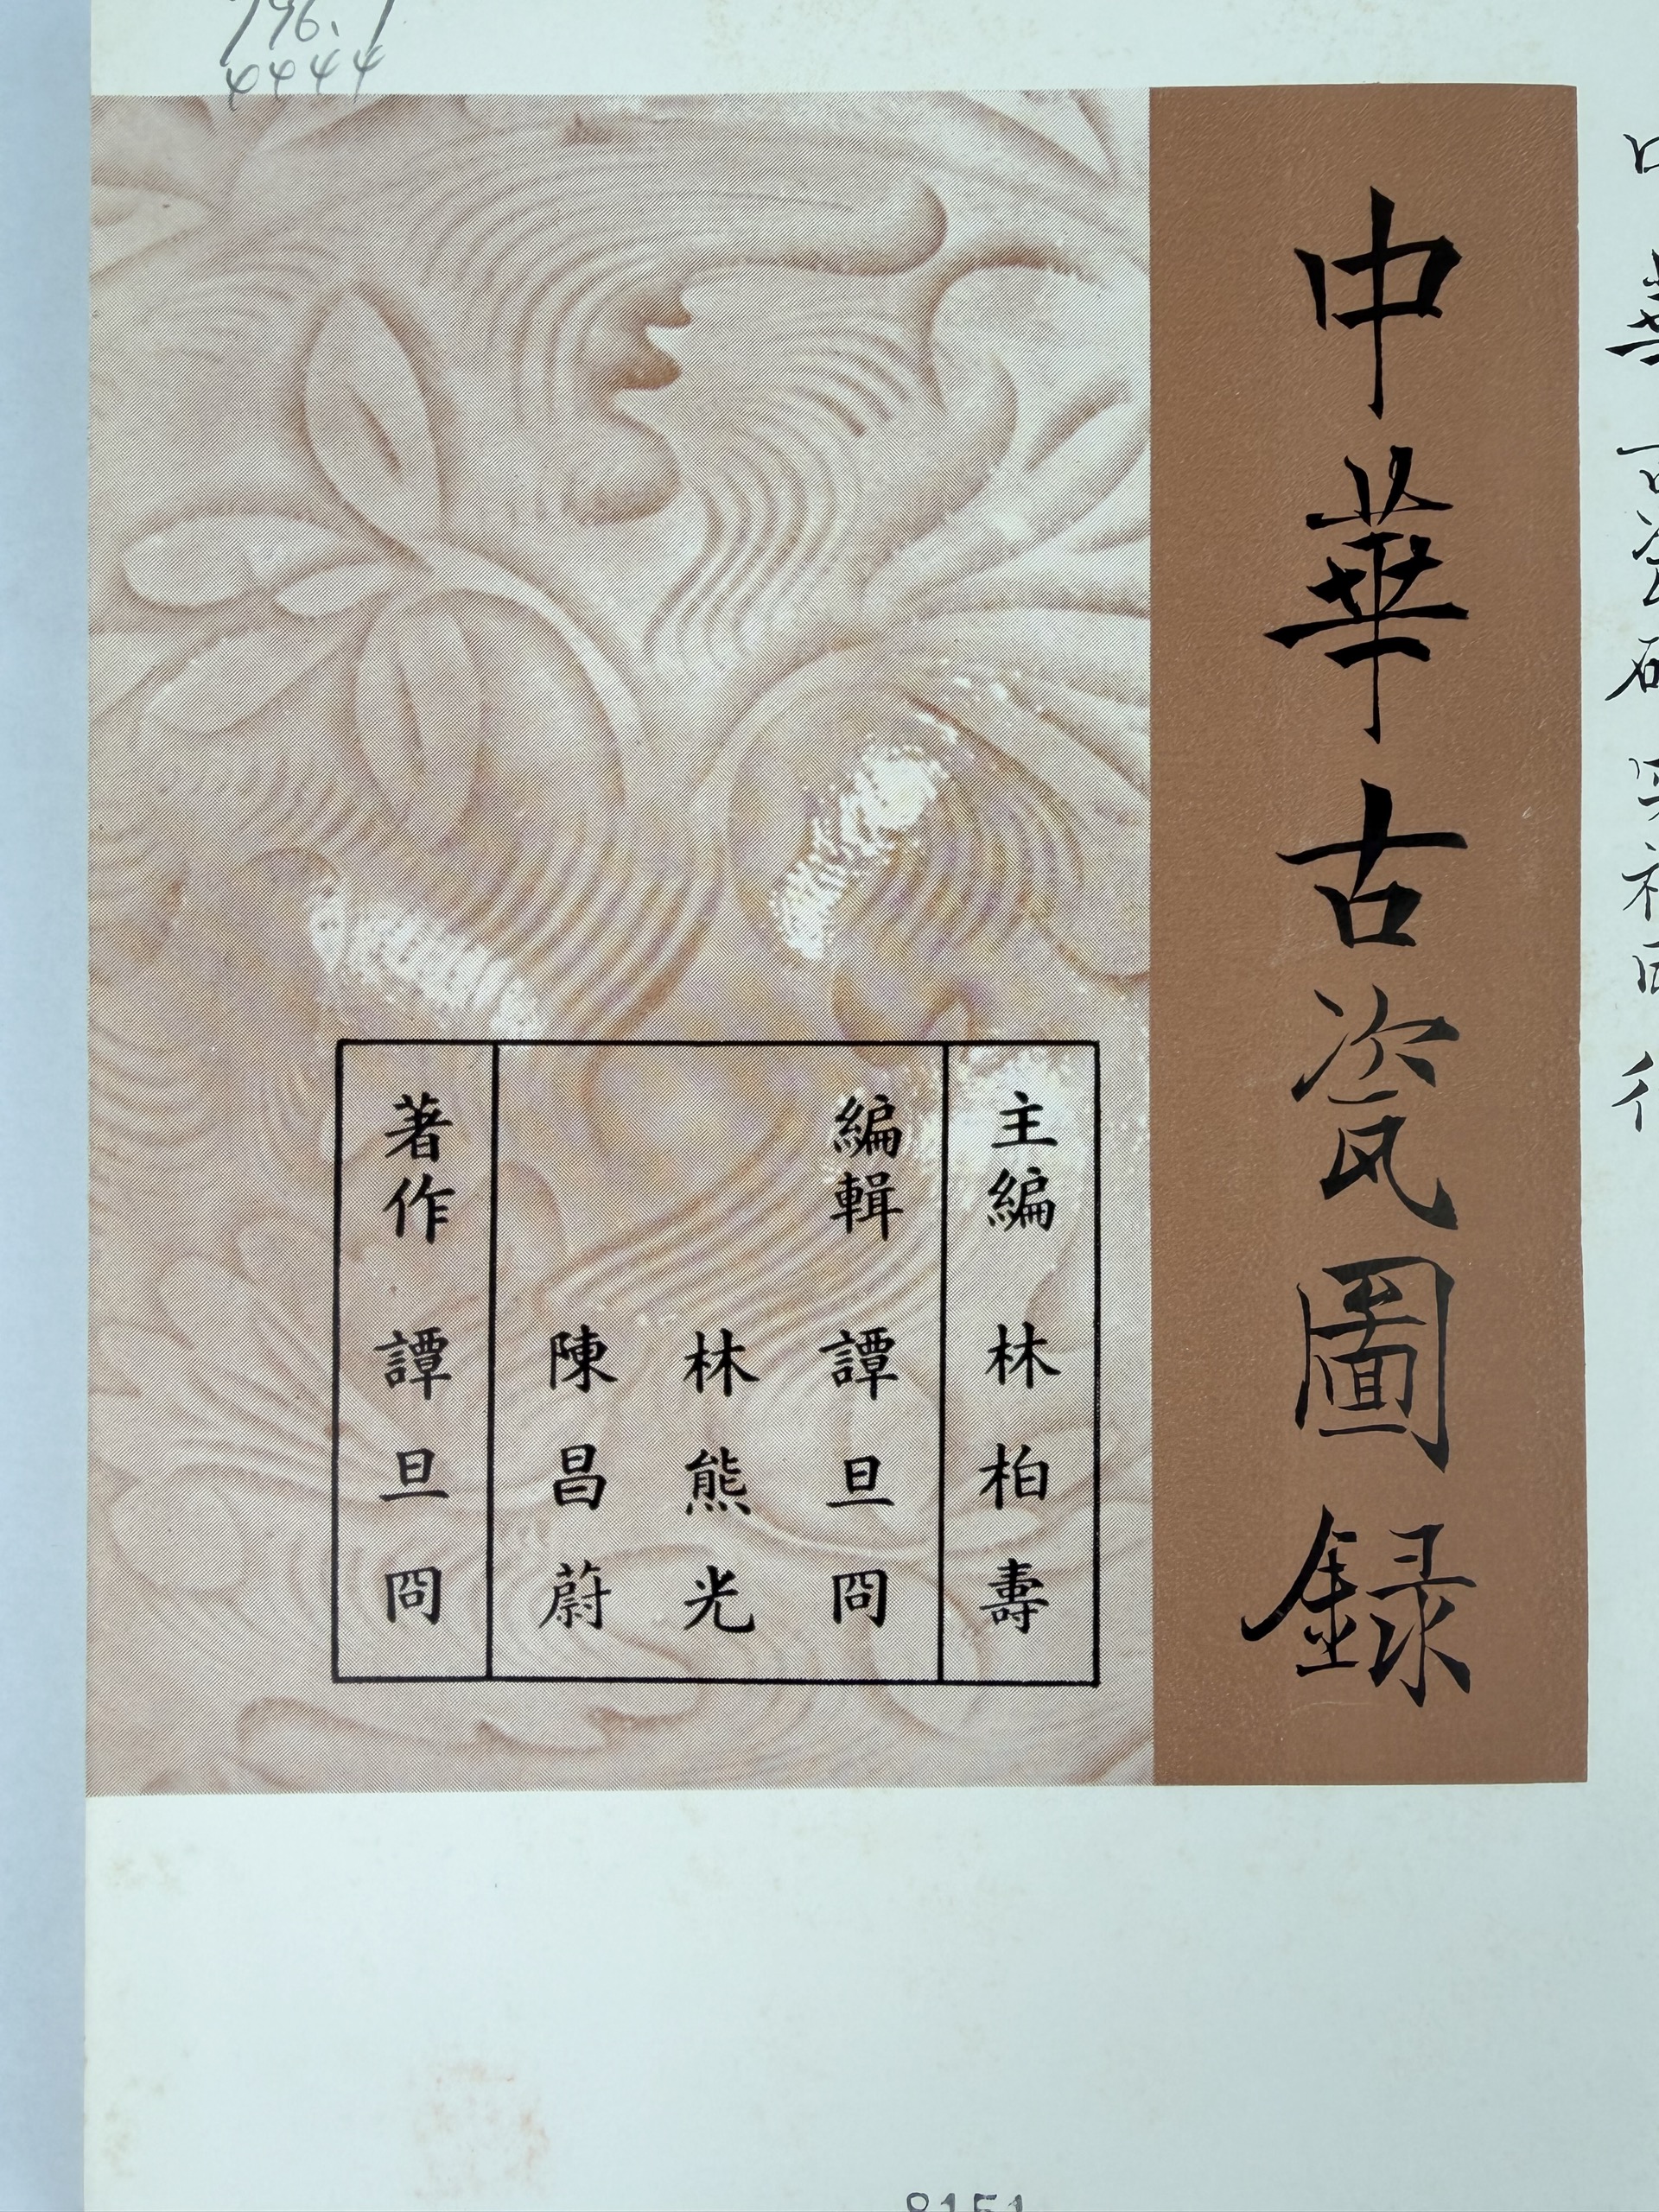 796.1
4444
中華古瓷圖録
主編 林柏壽
編輯 譚旦冏
林熊光
陳昌蔚
著作 譚旦冏
8151